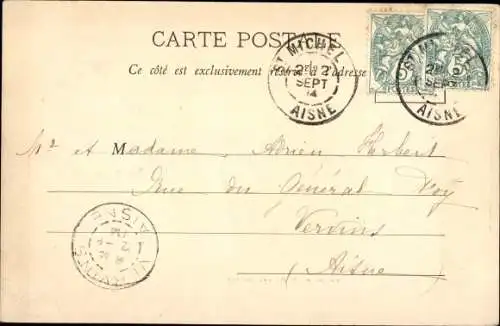 CARTE POSTALE
Ce côté est exclusivement réservé à l'adresse
ST MICHEL
2E 2
SEPT
14
AISNE
ST MICHEL
2E 2
SEPT
14
AISNE
POSTES
Mr et Madame Adrien Herbert
Rue du Général Foy
Vervins
Aisne
VERVINS
AISNE